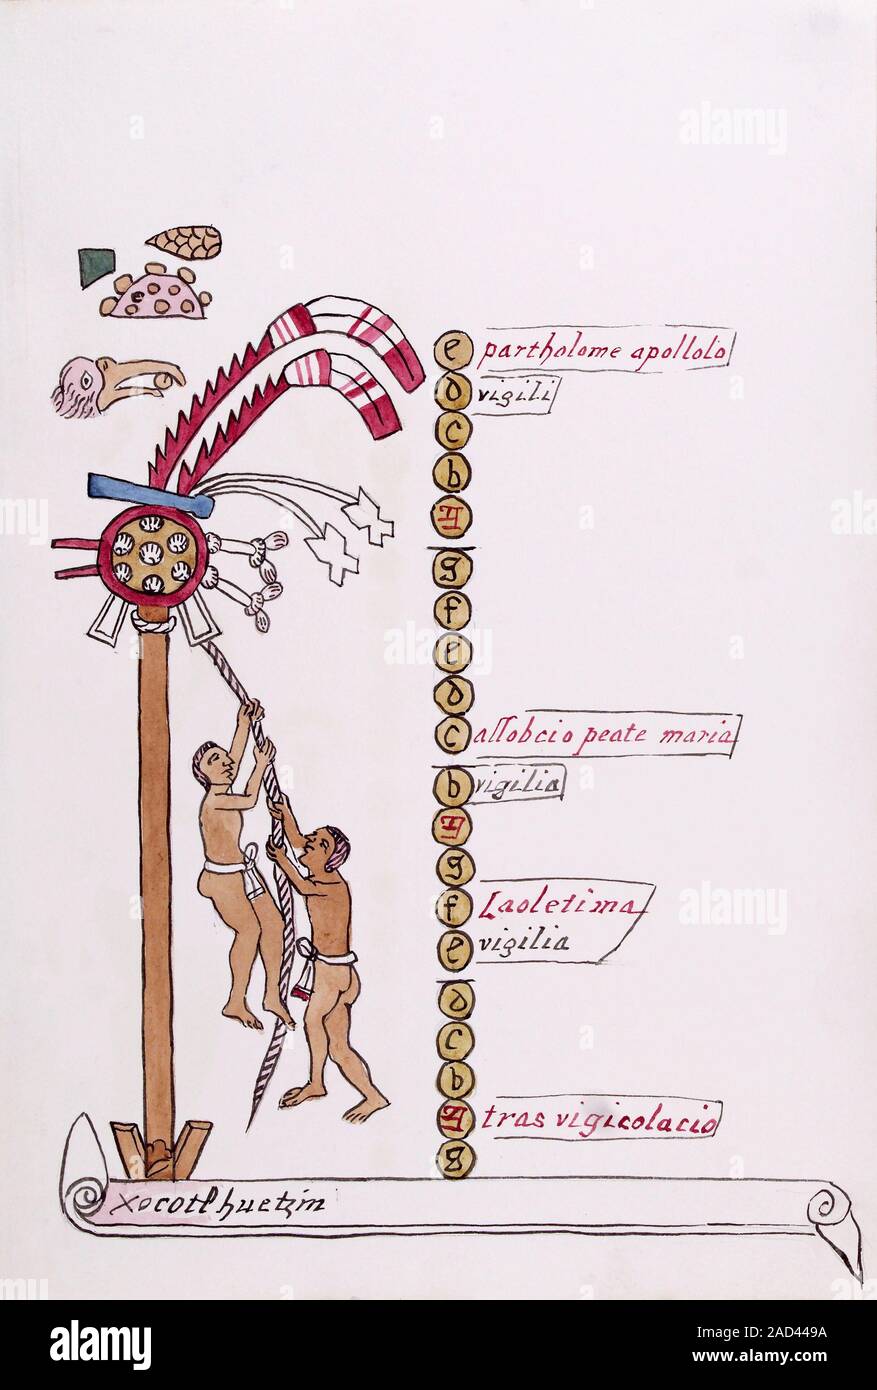 e partholome apollolo
d vigili
c
b
A
g
f
e
d
c allobcio peate maria
b vigilia
A
g
f Laoletima
e vigilia
d
c
b
A tras vigicolacio
g
xocotlhuetzin
alamy
Image ID: 2AD449A
www.alamy.com